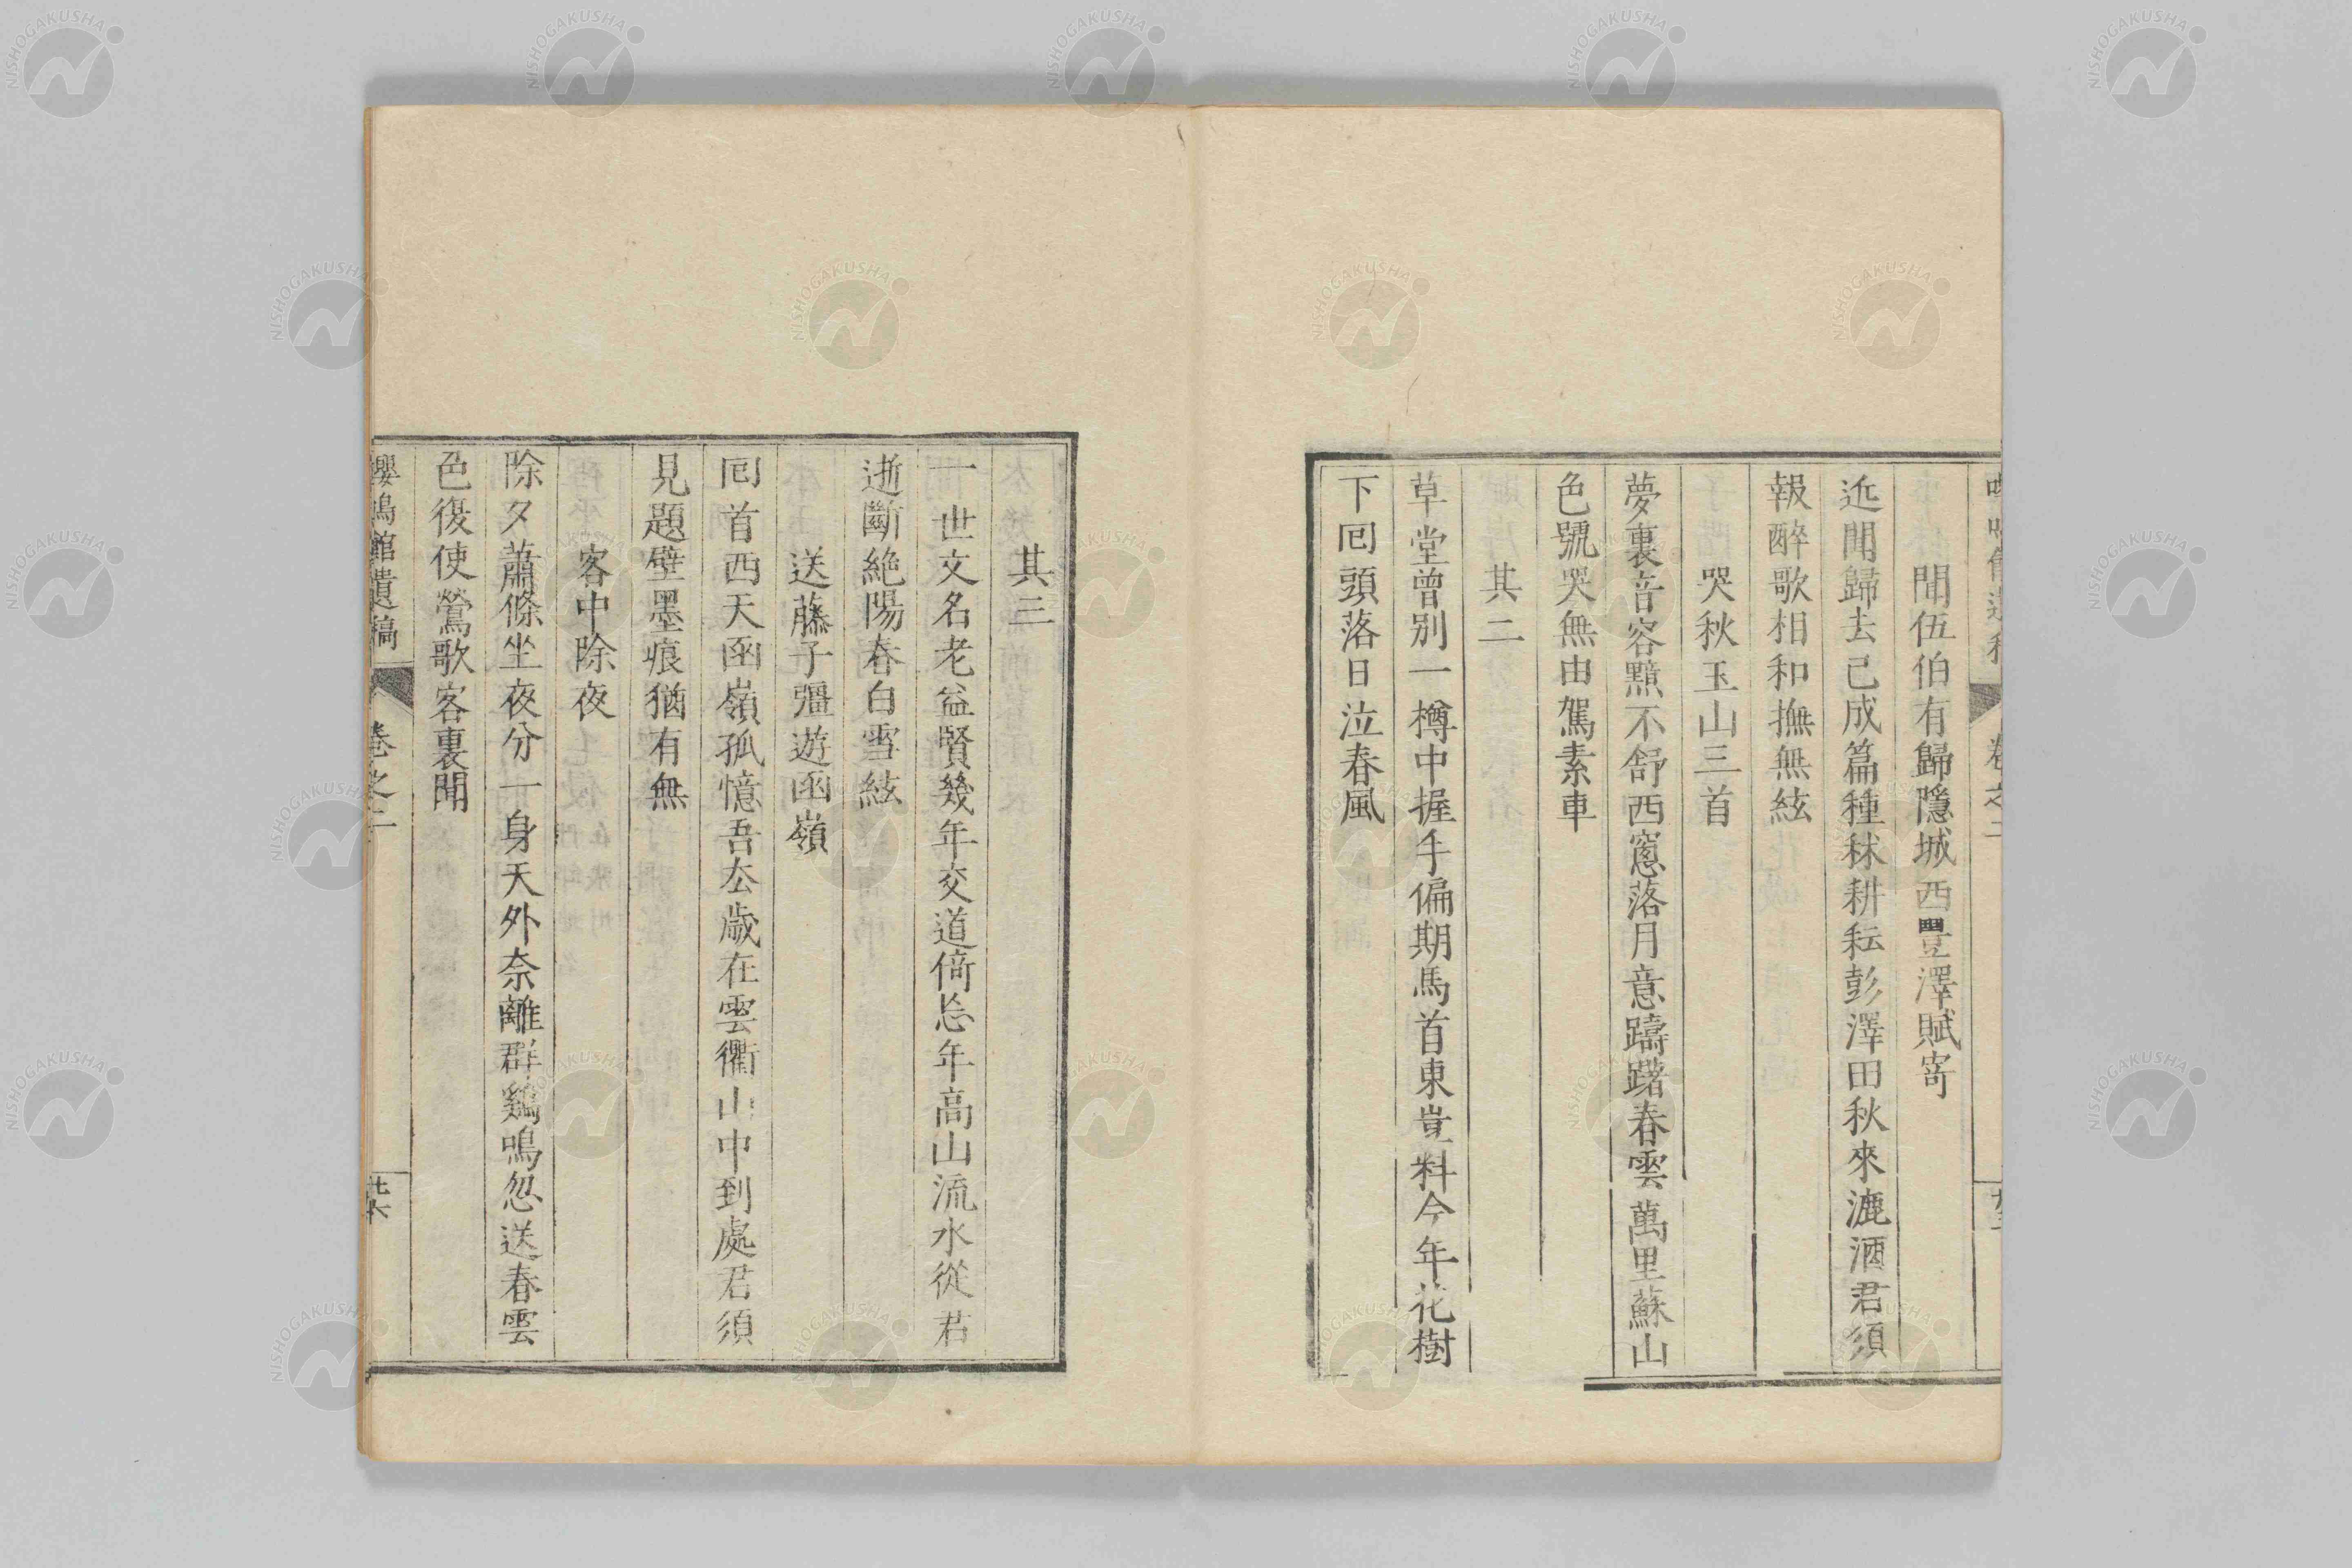 聞伍伯有歸隱城西豐澤賦寄
近聞歸去已成篇種秫耕耘彭澤田秋來漉酒君須
報醉歌相和撫無絃
哭秋玉山三首
夢裏音容黯不舒西窻落月意躊躇春雲萬里蘇山
色號哭無由駕素車
其二
草堂曾別一樽中握手偏期馬首東豈料今年花樹
下囘頭落日泣春風
其三
一世文名老益賢幾年交道倚忘年高山流水從君
逝斷絶陽春白雪絃
送藤子彊遊函嶺
囘首西天函嶺孤憶吾厺歲在雲衢山中到處君須
見題壁墨痕猶有無
客中除夜
除夕蕭條坐夜分一身天外奈離群鷄鳴忽送春雲
色復使鶯歌客裏聞
嚶鳴館遺稿
卷之二
NISHOGAKUSHA